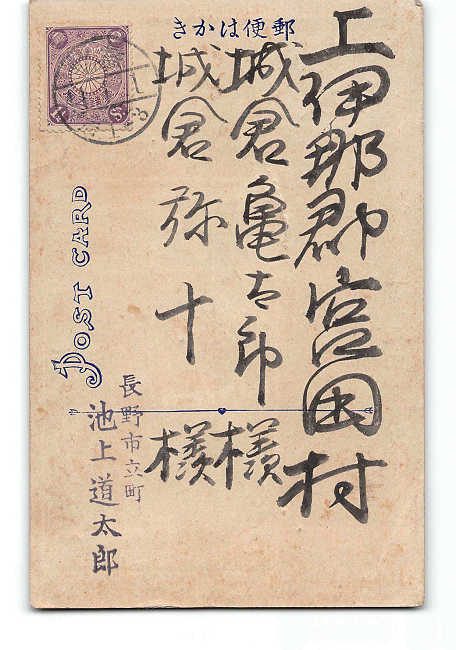 きかは便郵
上伊那郡宮田村
城倉亀太郎様
城倉弥十様
POST CARD
長野市立町
池上道太郎